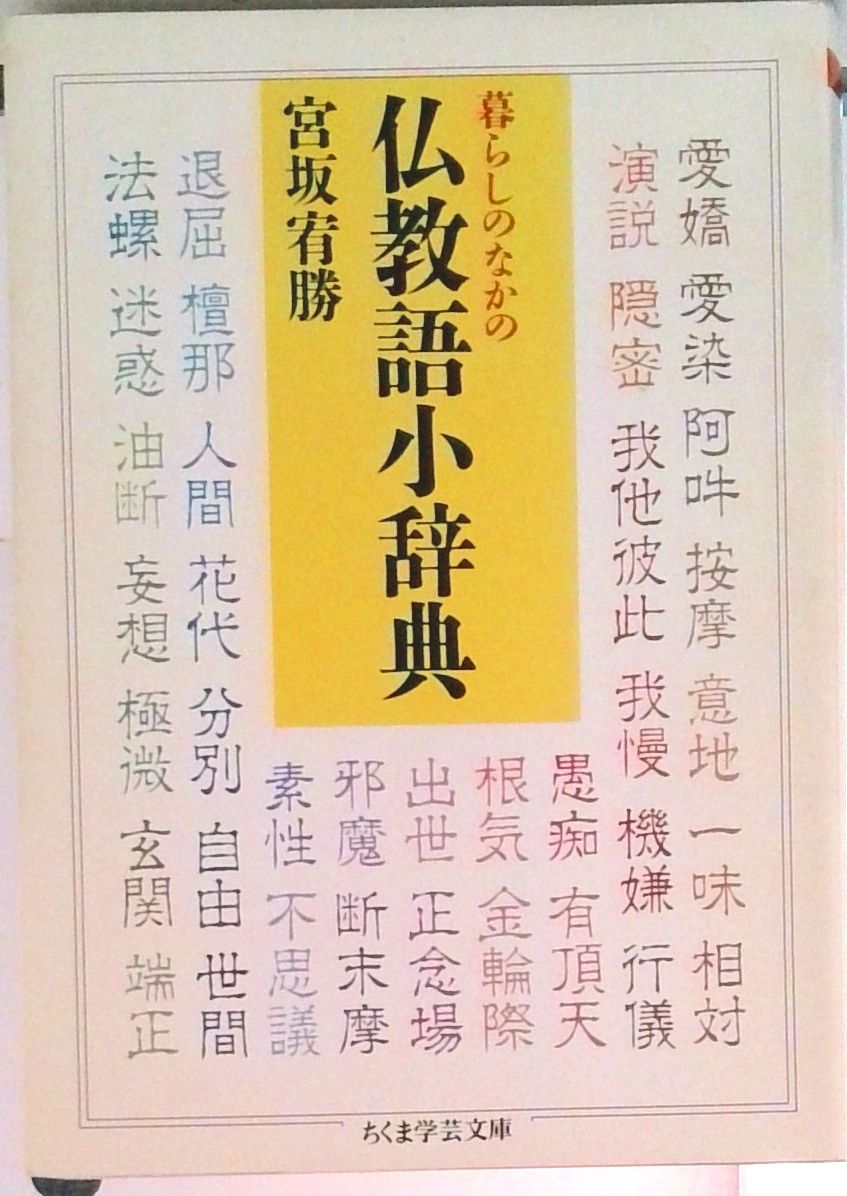 暮らしのなかの
仏教語小辞典
宮坂宥勝
愛嬌 愛染 阿吽 按摩 意地 一味 相対
演説 隠密 我他彼此 我慢 機嫌 行儀
愚痴 有頂天
根気 金輪際
出世 正念場
邪魔 断末摩
素性 不思議
退屈 檀那 人間 花代 分別 自由 世間
法螺 迷惑 油断 妄想 極微 玄関 端正
ちくま学芸文庫